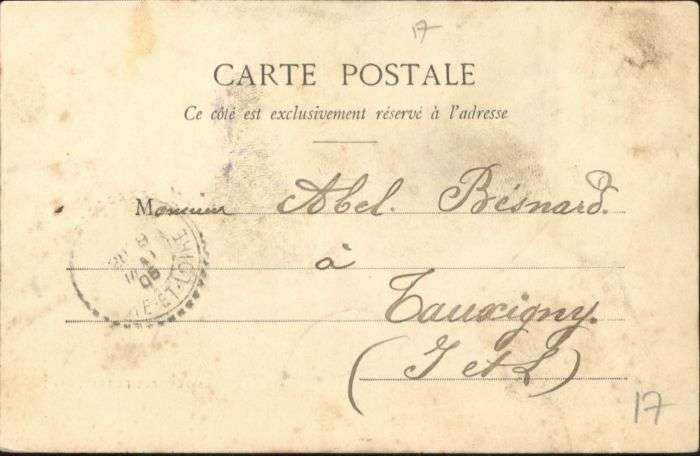 17
CARTE POSTALE
Ce côté est exclusivement réservé à l'adresse
Monsieur Abel. Bésnard.
à
Tauxigny.
(I et L)
MAI
06
ET-LOIRE
17